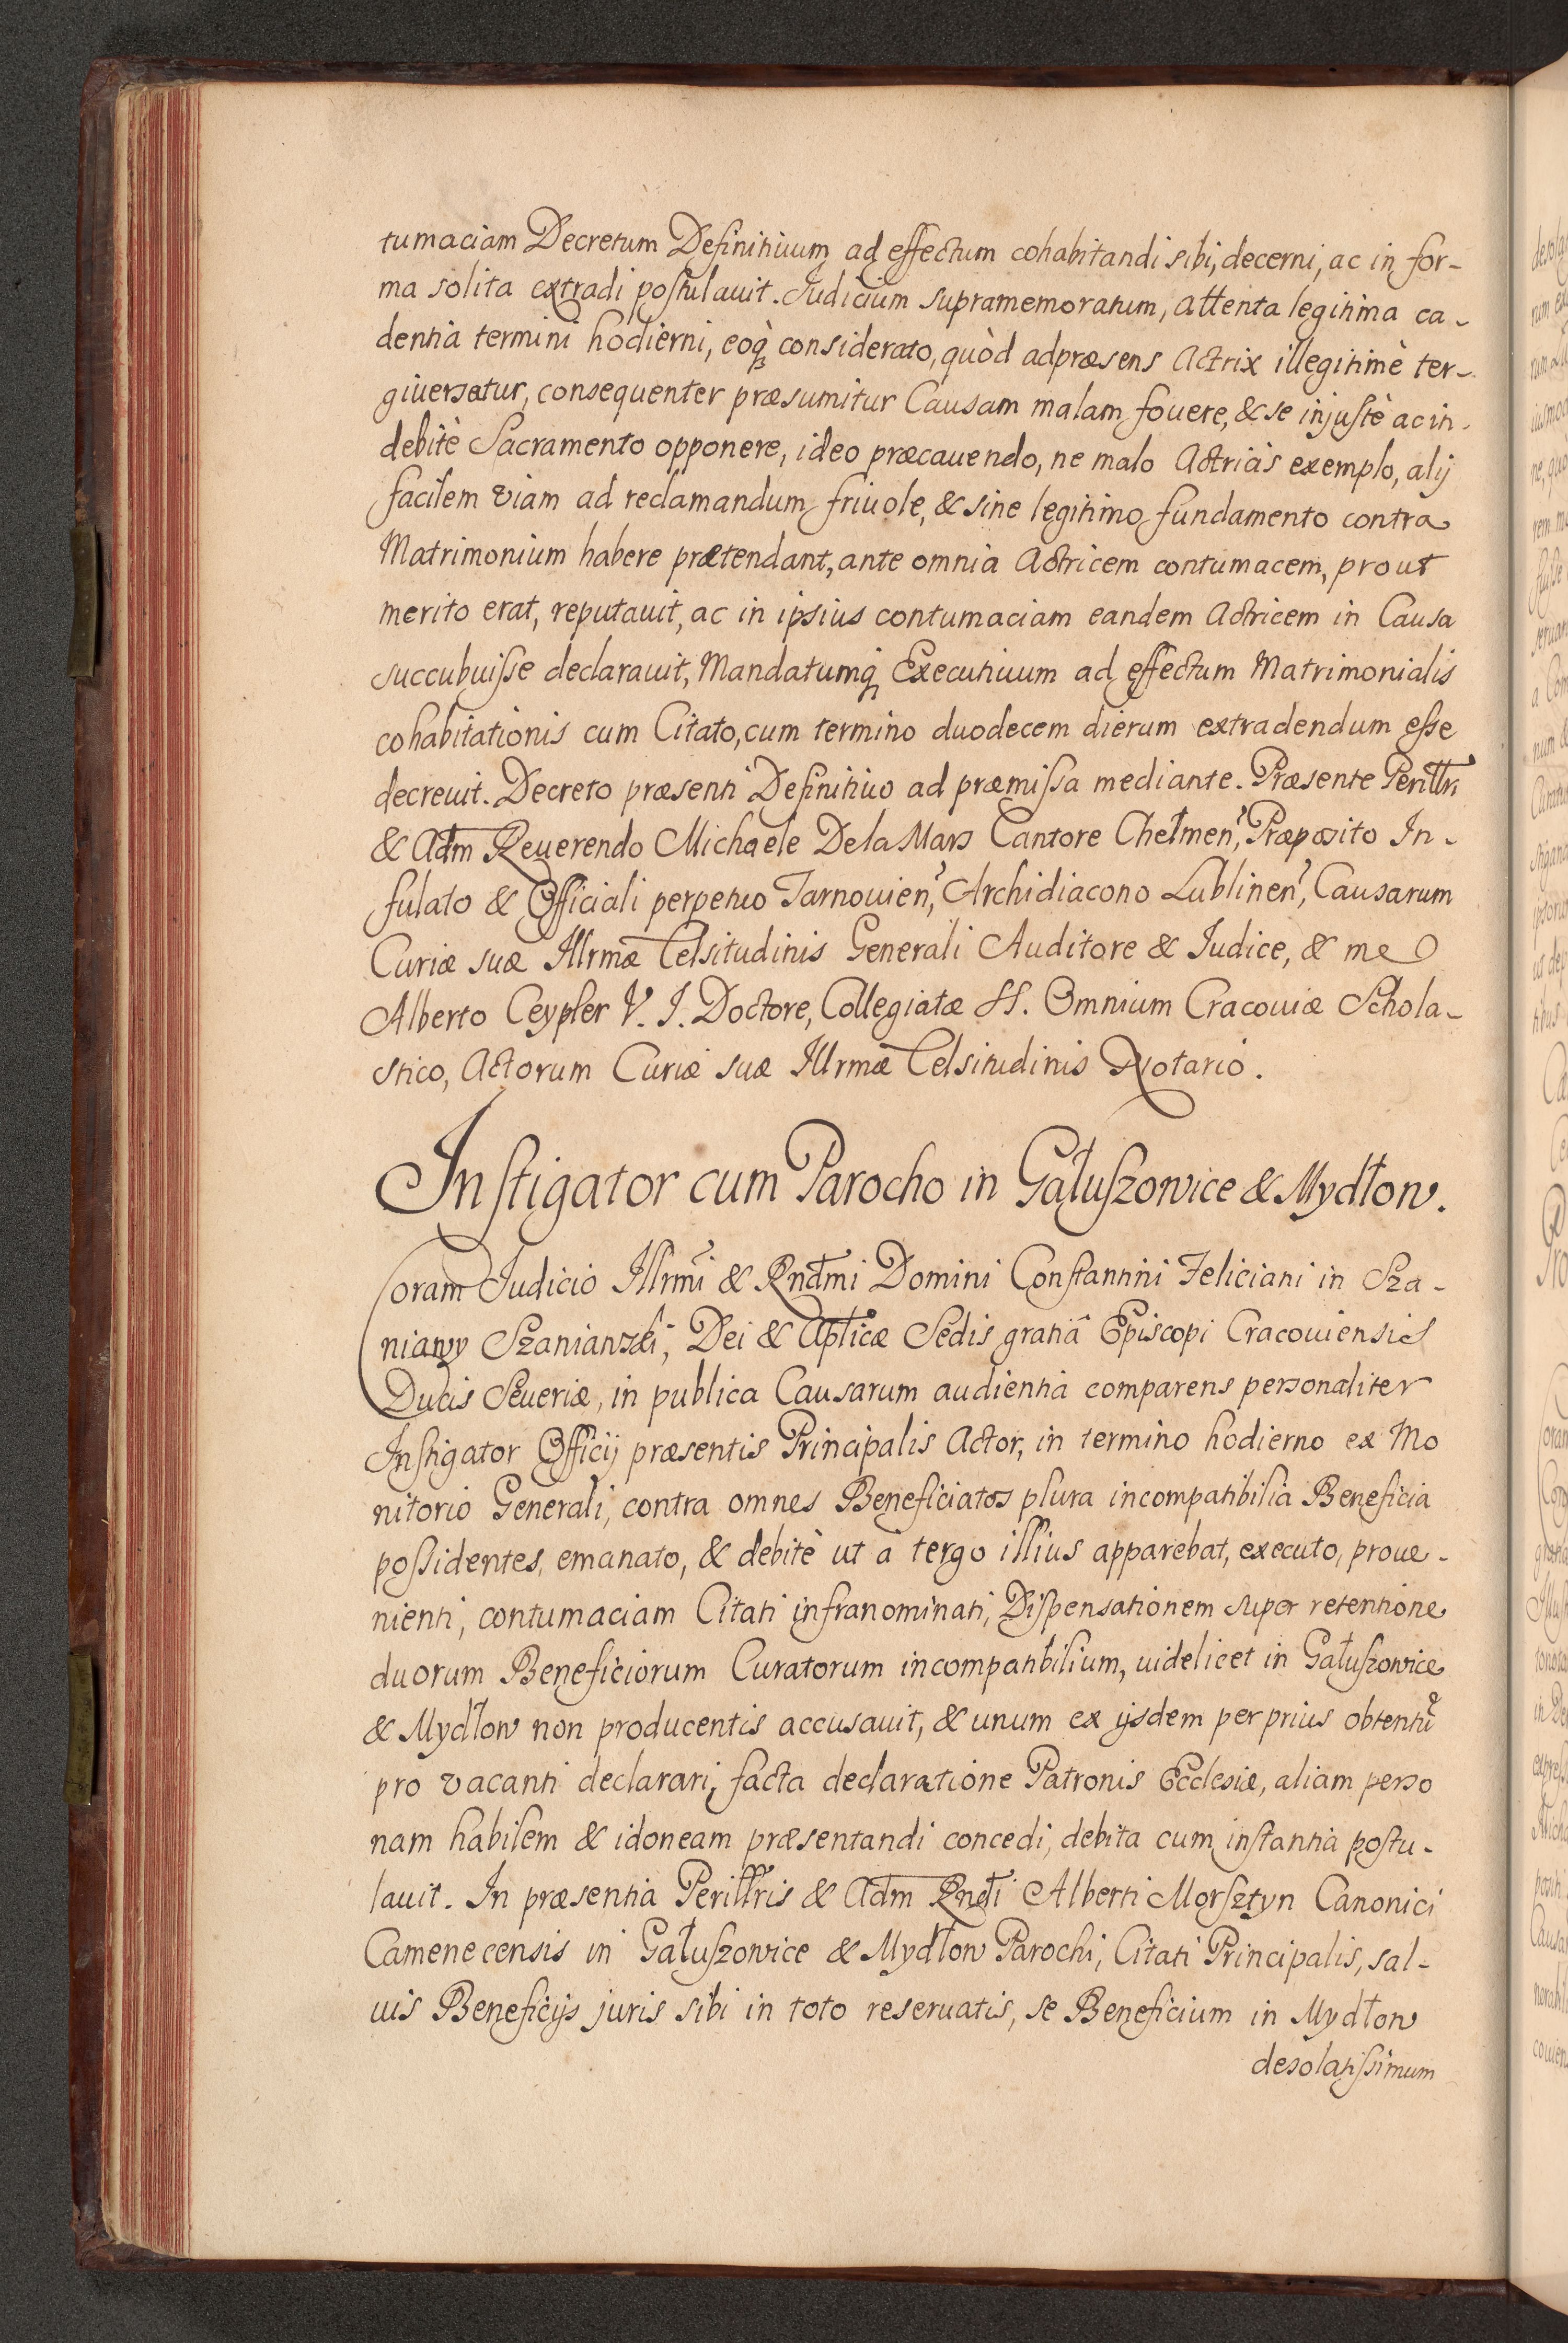 tumaciam Decretum Definitiuum ad effectum cohabitandi sibi, decerni, ac in for-
ma solita extradi postulauit. Iudicium supramemoratum, attenta legitima ca-
dentia termini hodierni, eoq̀ considerato, quòd adpræsens Actrix illegitimè ter-
giuersatur, consequenter præsumitur Causam malam fouere, & se injustè ac in-
debitè Sacramento opponere, ideo præcauendo, ne malo Actricis exemplo, alij
facilem viam ad reclamandum friuole, & sine legitimo fundamento contra
Matrimonium habere prætendant, ante omnia Actricem contumacem, prout
merito erat, reputauit, ac in ipsius contumaciam eandem Actricem in Causa
succubuisse declarauit, Mandatumq́ Executiuum ad effectum Matrimonialis
cohabitationis cum Citato, cum termino duodecem dierum extradendum esse
decreuit. Decreto præsenti Definitiuo ad præmissa mediante. Præsente Perillri
& Adm Reuerendo Michaele De la Mars Cantore Chełmen', Præposito In-
fulato & Officiali perpetuo Tarnouien', Archidiacono Lublinen', Causarum
Curiæ suæ Illrmæ Celsitudinis Generali Auditore & Iudice, & me
Alberto Ceypler V. I. Doctore, Collegiatæ SS. Omnium Cracouiæ Schola-
stico, Actorum Curiæ suæ Illrmæ Celsitudinis Notario.
Instigator cum Parocho in Gałuszowice & Mydłow.
Coram Iudicio Illrmi & Rndmi Domini Constantini Feliciani in Sza-
niawy Szaniawski, Dei & Aplicæ Sedis gratiâ Episcopi Cracouiensis
Ducis Seueriæ, in publica Causarum audientia comparens personaliter
Instigator Officij præsentis Principalis Actor, in termino hodierno ex Mo
nitorio Generali, contra omnes Beneficiatos plura incompatibilia Beneficia
possidentes, emanato, & debitè ut à tergo illius apparebat, executo, proue-
nienti, contumaciam Citati infranominati, Dispensationem super retentione
duorum Beneficiorum Curatorum incompatibilium, uidelicet in Gałuszowice
& Mydłow non producentis accusauit, & unum ex ijsdem per prius obtentũ
pro vacanti declarari, facta declaratione Patronis Ecclesiæ, aliam perso
nam habilem & idoneam præsentandi concedi, debita cum instantia postu-
lauit. In præsentia Perillris & Adm Rndi Alberti Morsztyn Canonici
Camenecensis in Gałuszowice & Mydłow Parochi, Citati Principalis, sal-
uis Beneficijs juris sibi in toto reseruatis, se Beneficium in Mydłow
desolatissimum